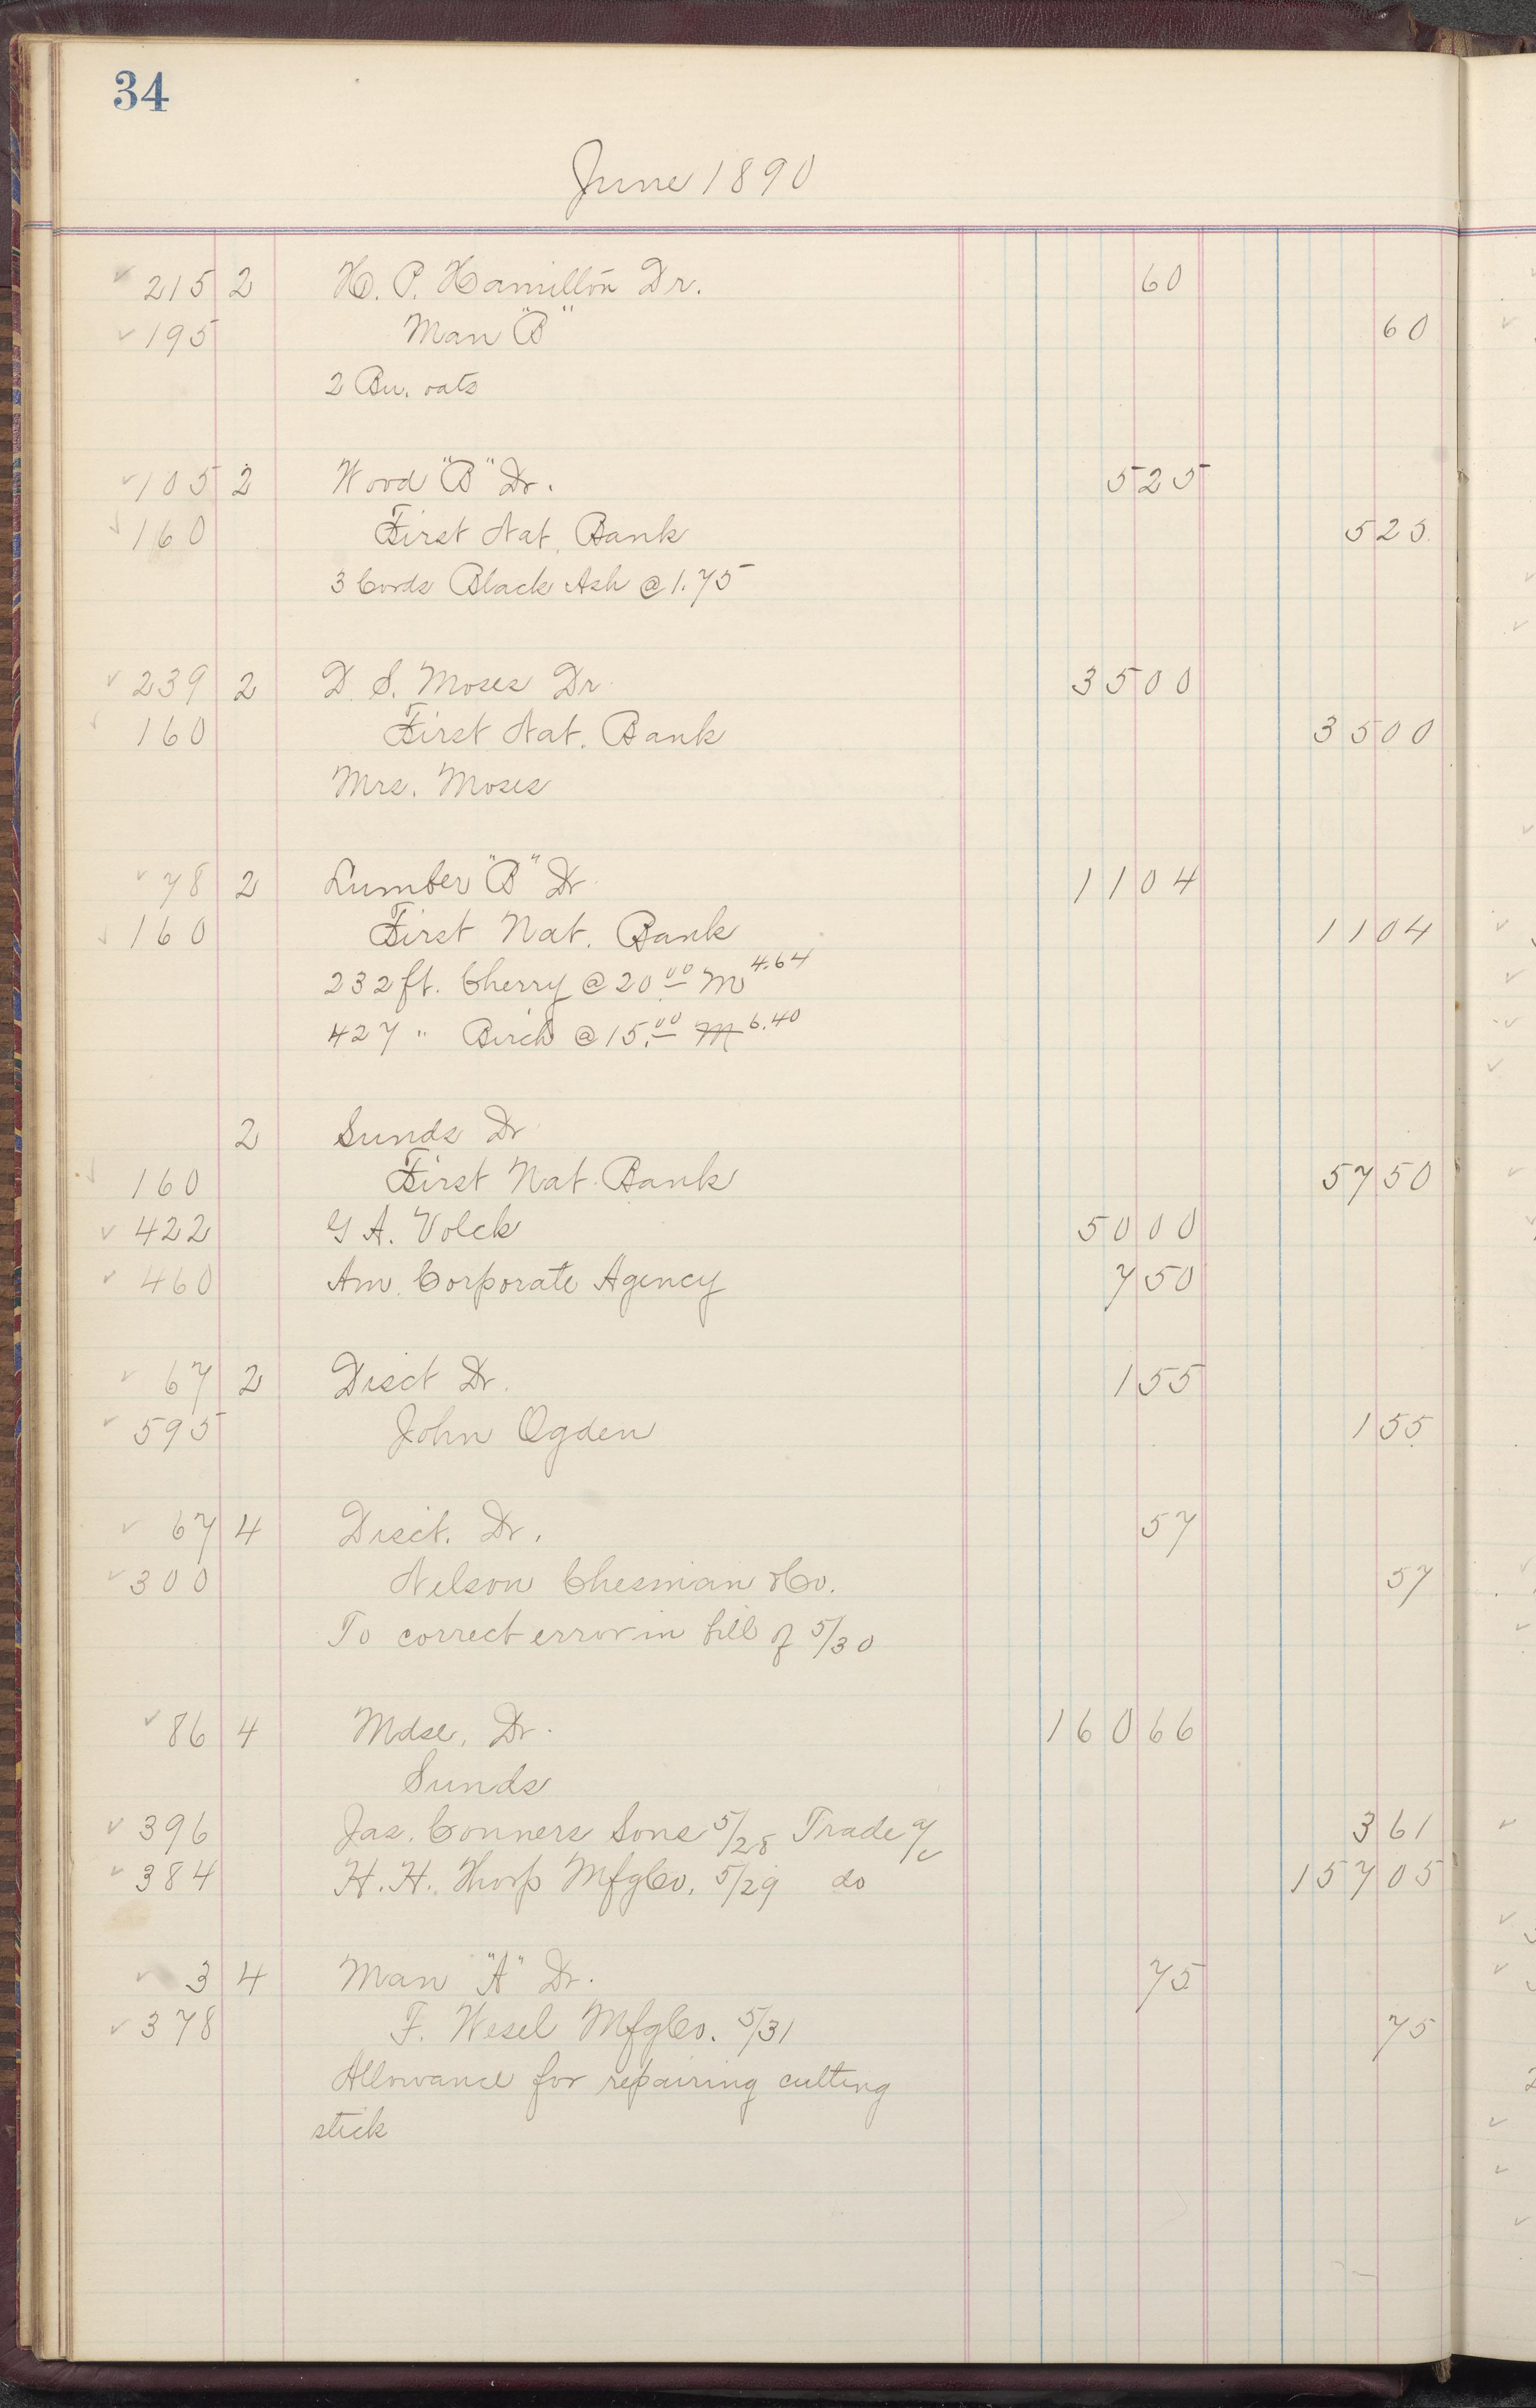 34
June 1890
215 2 H. P. Hamilton Dr. 60
195 Man "B" 60
2 Bu. oats
105 2 Wood "B" Dr. 525
160 First Nat. Bank 525
3 Cords Black Ash @ 1.75
239 2 D. S. Moses Dr. 3500
160 First Nat. Bank 3500
Mrs. Moses
78 2 Lumber "B" Dr. 1104
160 First Nat. Bank 1104
232 ft. Cherry @ 20.00 M 4.64
427 " Birch @ 15.00 M 6.40
2 Sunds Dr
160 First Nat. Bank 5750
422 G A. Volck 5000
460 Am. Corporate Agency 750
67 2 Disct Dr. 155
595 John Ogden 155
67 4 Disct. Dr. 57
300 Nelson Chesman & Co. 57
To correct error in bill of 5/30
86 4 Mdse. Dr. 16066
Sunds
396 Jas. Conners Sons 5/28 Trade a/c 361
384 H. H. Thorp Mfg Co. 5/29 do 15705
3 4 Man "A" Dr. 75
378 F. Wesel Mfg Co. 5/31 75
Allowance for repairing cutting
stick